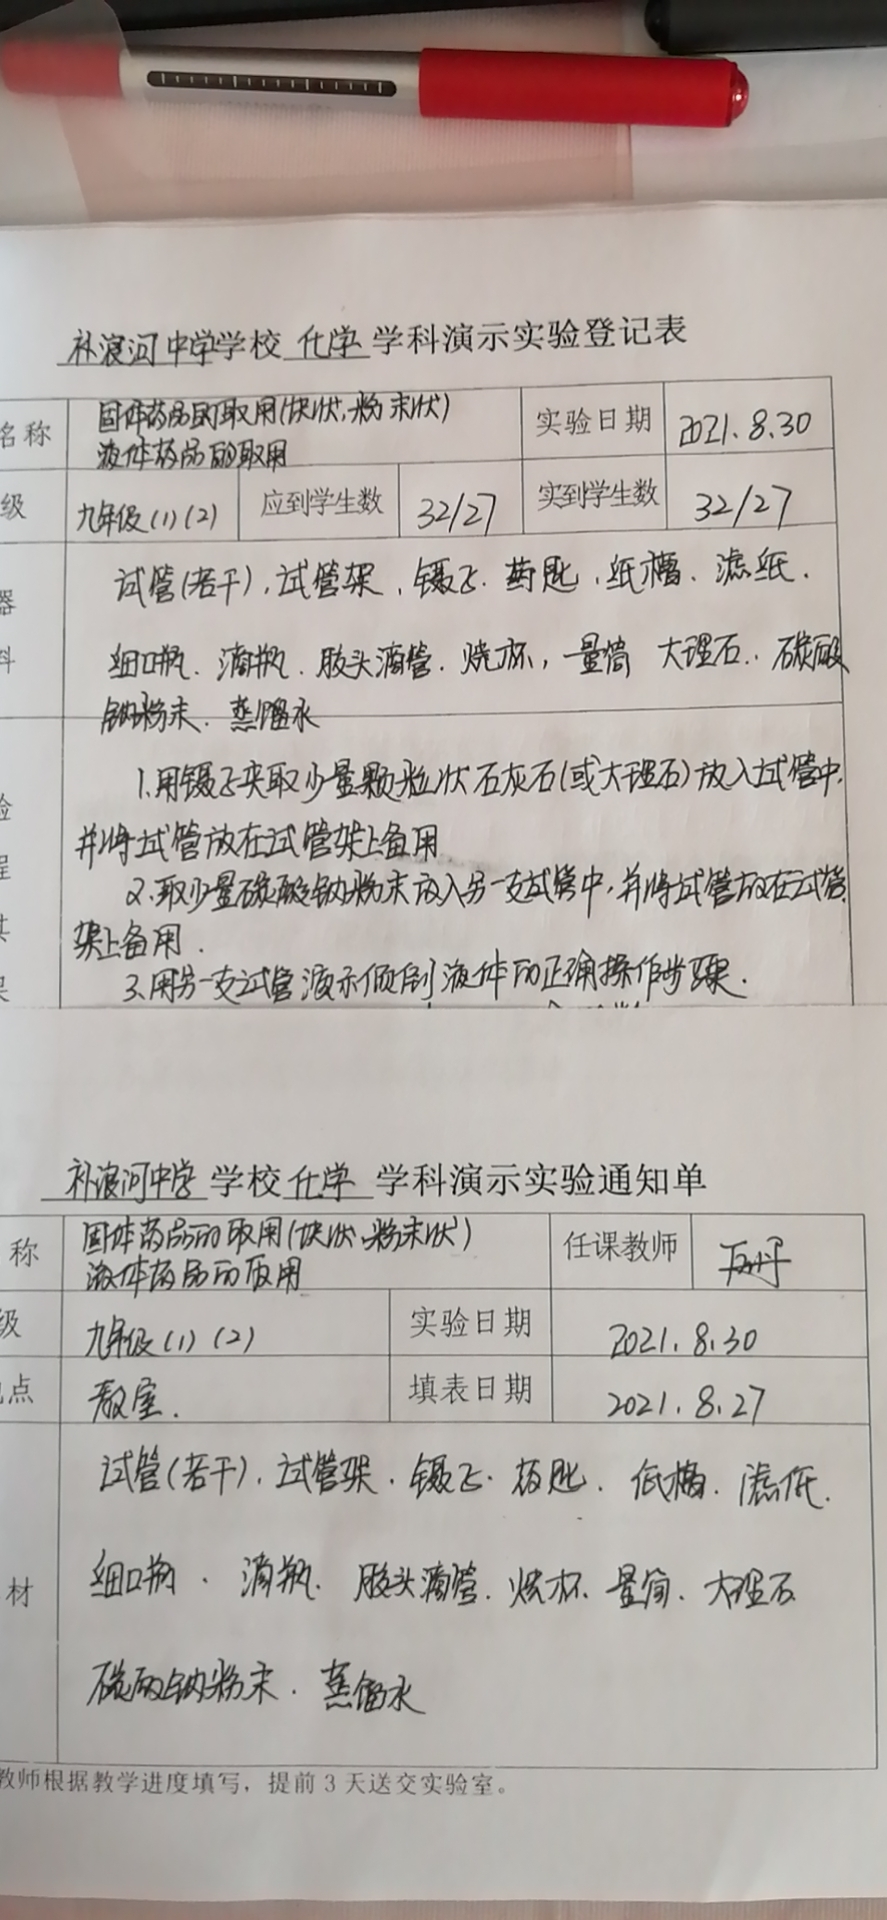 补浪河中学学校 化学 学科演示实验登记表
名称 固体药品的取用(块状,粉末状) 实验日期 2021.8.30
液体药品的取用
级 九年级(1)(2) 应到学生数 32/27 实到学生数 32/27
器 试管(若干),试管架、镊子.药匙、纸槽、滤纸.
料 细口瓶、滴瓶、胶头滴管.烧杯,量筒 大理石.碳酸
钠粉末、蒸馏水
1.用镊子夹取少量颗粒状石灰石(或大理石)放入试管中,
验 并将试管放在试管架上备用
程 2.取少量碳酸钠粉末放入另一支试管中,并将试管放在试管
其 架上备用.
果 3.用另一支试管演示倾倒液体的正确操作步骤.
补浪河中学 学校 化学 学科演示实验通知单
称 固体药品的取用(块状、粉末状) 任课教师
液体药品的取用
级 九年级(1)(2) 实验日期 2021.8.30
点 教室. 填表日期 2021.8.27
试管(若干).试管架.镊子.药匙.纸槽.滤纸.
材 细口瓶.滴瓶.胶头滴管.烧杯.量筒.大理石
碳酸钠粉末.蒸馏水
教师根据教学进度填写,提前3天送交实验室。